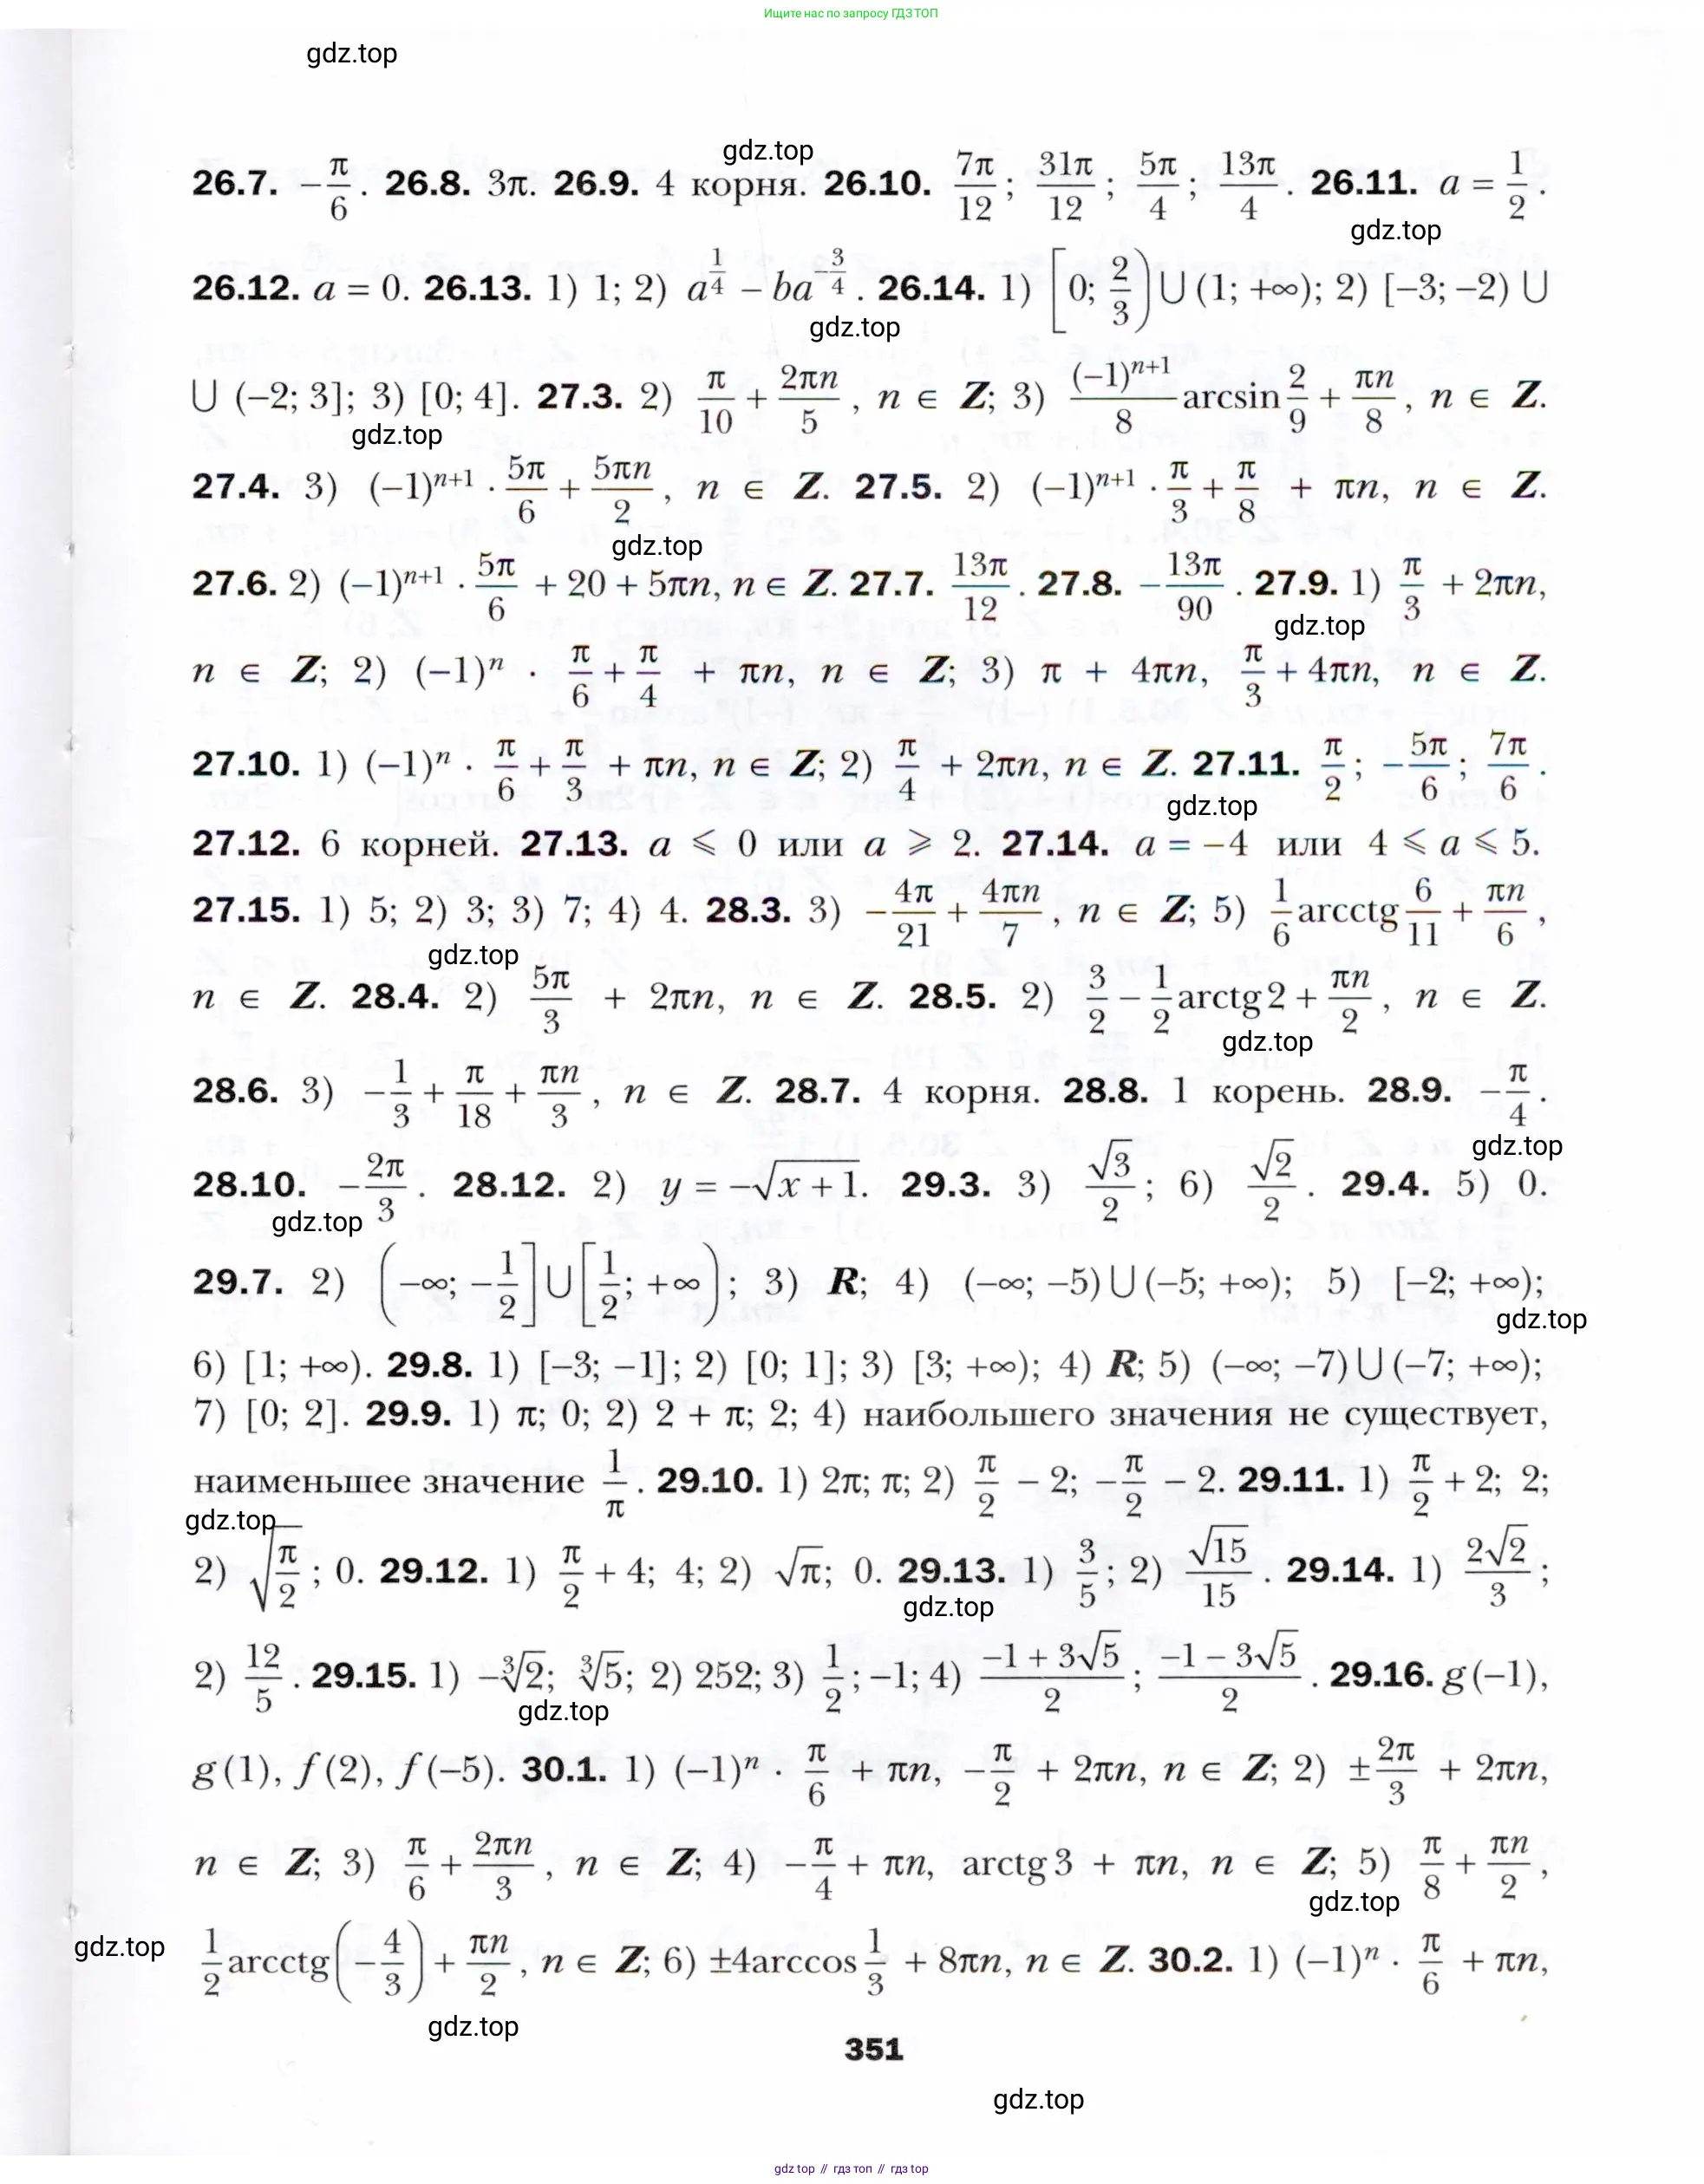 Ищите нас по запросу ГДЗ ТОП
gdz.top
gdz.top
26.7. −π/6. 26.8. 3π. 26.9. 4 корня. 26.10. 7π/12; 31π/12; 5π/4; 13π/4. 26.11. a = 1/2.
gdz.top
26.12. a = 0. 26.13. 1) 1; 2) a^(1/4) − ba^(−3/4). 26.14. 1) [0; 2/3) ∪ (1; +∞); 2) [−3; −2) ∪
gdz.top
∪ (−2; 3]; 3) [0; 4]. 27.3. 2) π/10 + 2πn/5, n ∈ Z; 3) (−1)^(n+1)/8 arcsin 2/9 + πn/8, n ∈ Z.
gdz.top
27.4. 3) (−1)^(n+1) · 5π/6 + 5πn/2, n ∈ Z. 27.5. 2) (−1)^(n+1) · π/3 + π/8 + πn, n ∈ Z.
gdz.top
27.6. 2) (−1)^(n+1) · 5π/6 + 20 + 5πn, n ∈ Z. 27.7. 13π/12. 27.8. −13π/90. 27.9. 1) π/3 + 2πn,
gdz.top
n ∈ Z; 2) (−1)^n · π/6 + π/4 + πn, n ∈ Z; 3) π + 4πn, π/3 + 4πn, n ∈ Z.
27.10. 1) (−1)^n · π/6 + π/3 + πn, n ∈ Z; 2) π/4 + 2πn, n ∈ Z. 27.11. π/2; −5π/6; 7π/6.
gdz.top
27.12. 6 корней. 27.13. a ⩽ 0 или a ⩾ 2. 27.14. a = −4 или 4 ⩽ a ⩽ 5.
27.15. 1) 5; 2) 3; 3) 7; 4) 4. 28.3. 3) −4π/21 + 4πn/7, n ∈ Z; 5) 1/6 arcctg 6/11 + πn/6,
gdz.top
n ∈ Z. 28.4. 2) 5π/3 + 2πn, n ∈ Z. 28.5. 2) 3/2 − 1/2 arctg 2 + πn/2, n ∈ Z.
gdz.top
28.6. 3) −1/3 + π/18 + πn/3, n ∈ Z. 28.7. 4 корня. 28.8. 1 корень. 28.9. −π/4.
gdz.top
28.10. −2π/3. 28.12. 2) y = −√(x + 1). 29.3. 3) √3/2; 6) √2/2. 29.4. 5) 0.
gdz.top
29.7. 2) (−∞; −1/2] ∪ [1/2; +∞); 3) R; 4) (−∞; −5) ∪ (−5; +∞); 5) [−2; +∞);
gdz.top
6) [1; +∞). 29.8. 1) [−3; −1]; 2) [0; 1]; 3) [3; +∞); 4) R; 5) (−∞; −7) ∪ (−7; +∞);
7) [0; 2]. 29.9. 1) π; 0; 2) 2 + π; 2; 4) наибольшего значения не существует,
наименьшее значение 1/π. 29.10. 1) 2π; π; 2) π/2 − 2; −π/2 − 2. 29.11. 1) π/2 + 2; 2;
gdz.top
2) √(π/2); 0. 29.12. 1) π/2 + 4; 4; 2) √π; 0. 29.13. 1) 3/5; 2) √15/15. 29.14. 1) 2√2/3;
gdz.top
2) 12/5. 29.15. 1) −∛2; ∛5; 2) 252; 3) 1/2; −1; 4) (−1 + 3√5)/2; (−1 − 3√5)/2. 29.16. g(−1),
gdz.top
g(1), f(2), f(−5). 30.1. 1) (−1)^n · π/6 + πn, −π/2 + 2πn, n ∈ Z; 2) ±2π/3 + 2πn,
n ∈ Z; 3) π/6 + 2πn/3, n ∈ Z; 4) −π/4 + πn, arctg 3 + πn, n ∈ Z; 5) π/8 + πn/2,
gdz.top
gdz.top
1/2 arcctg(−4/3) + πn/2, n ∈ Z; 6) ±4arccos 1/3 + 8πn, n ∈ Z. 30.2. 1) (−1)^n · π/6 + πn,
gdz.top
351
gdz.top
gdz top // гдз топ // гдз top